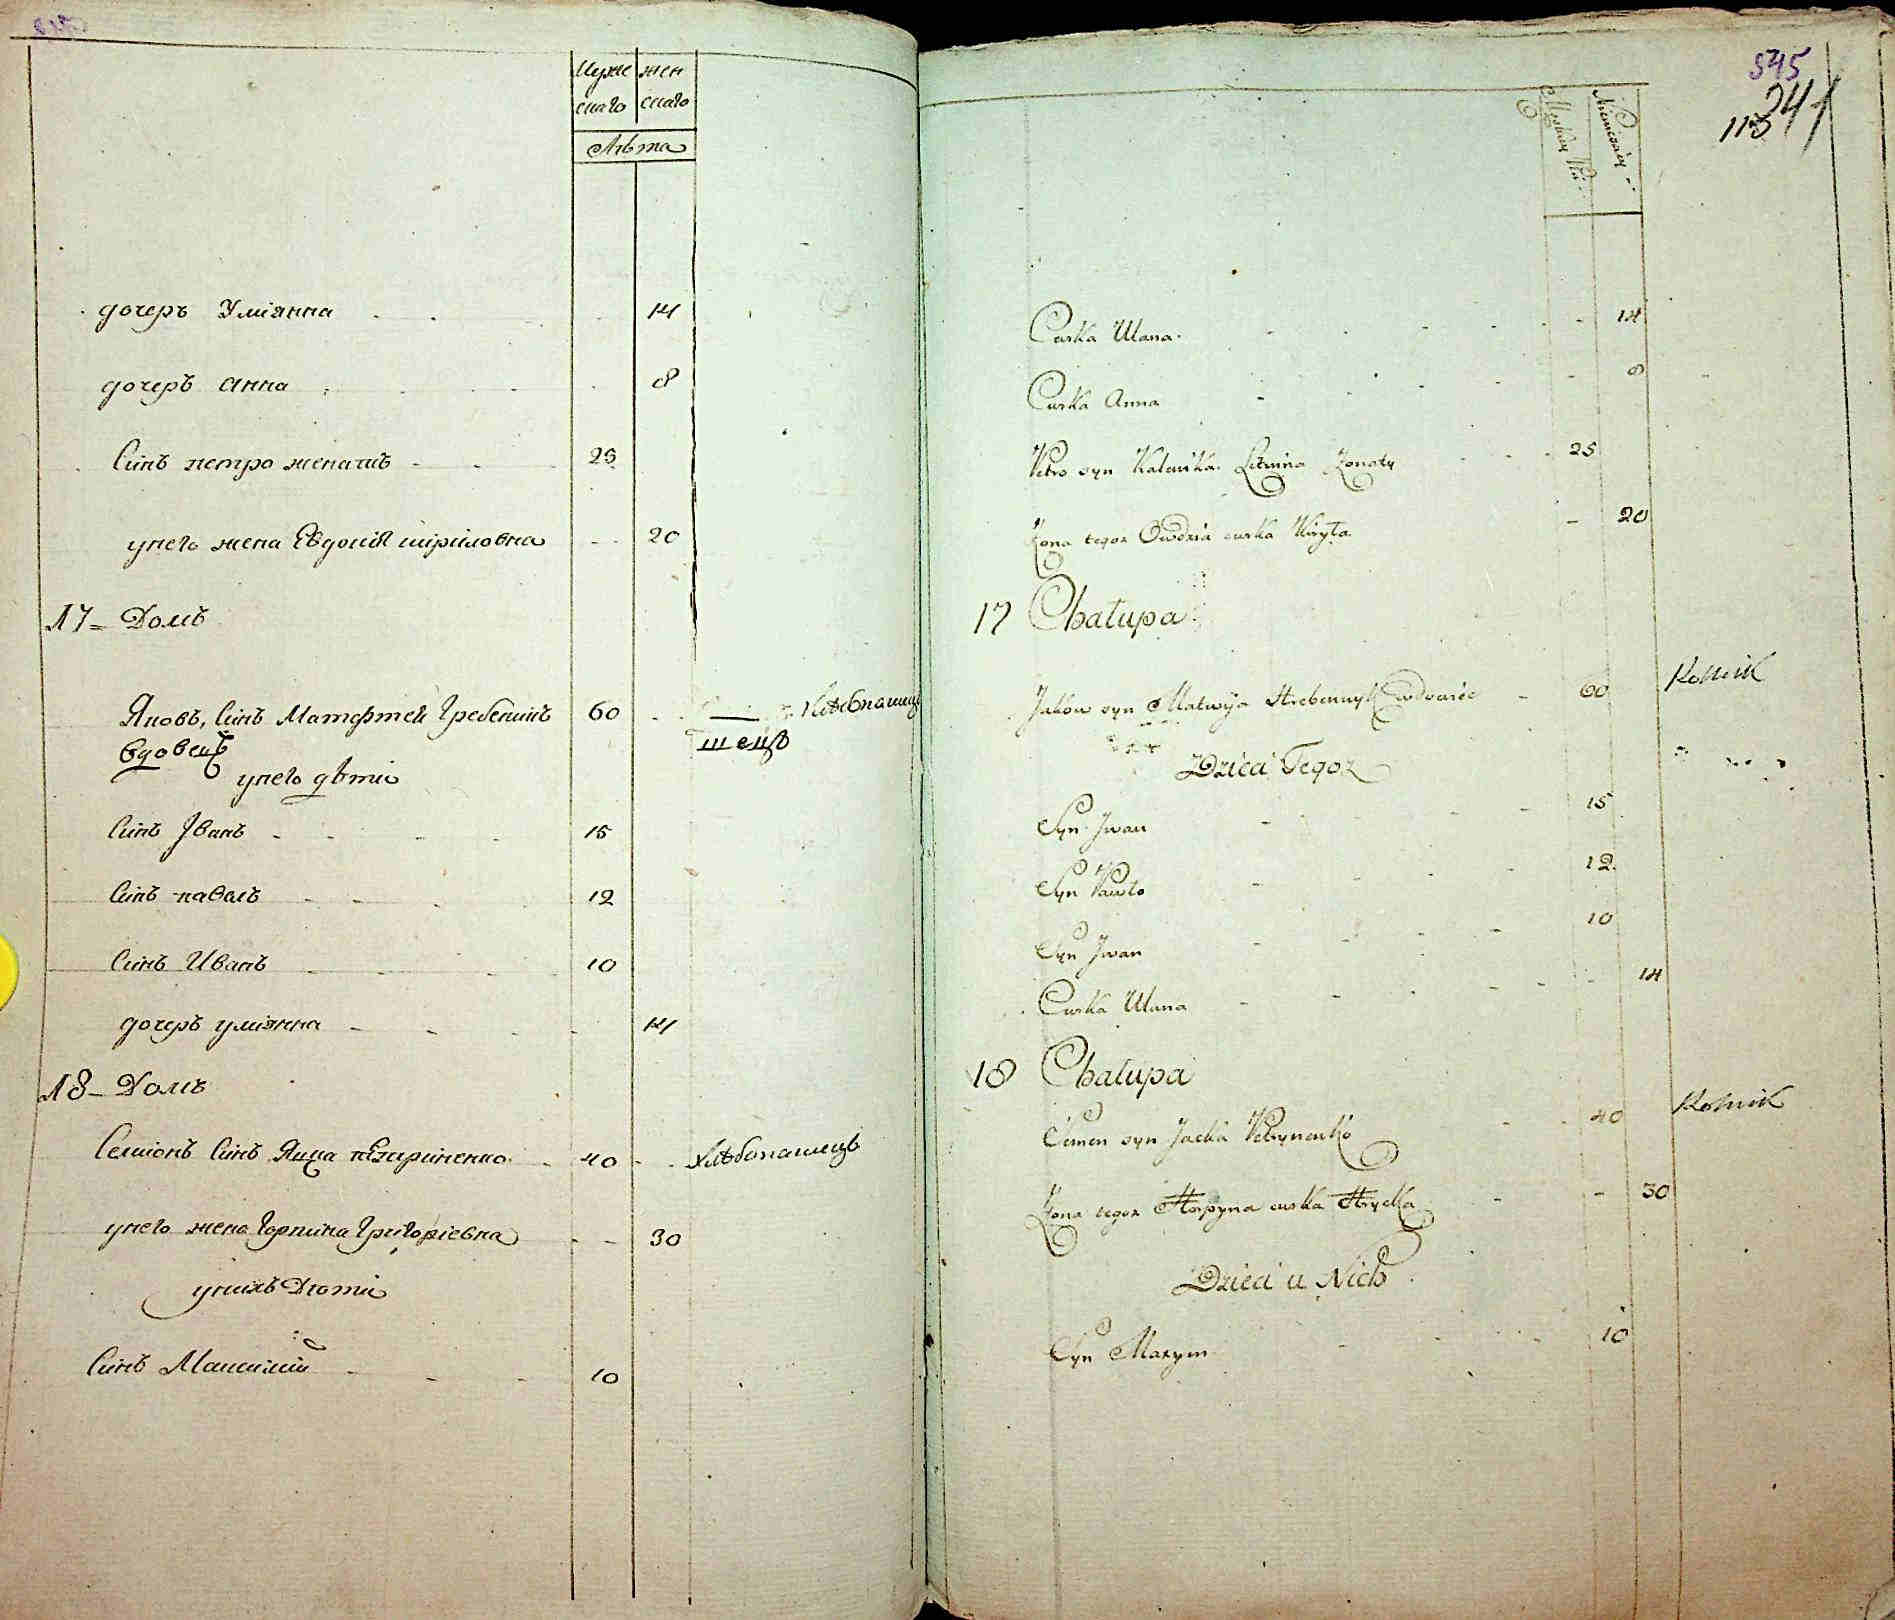 Муже жен
скаго скаго
Лѣта
дочеръ Улиянна 14
дочеръ Анна 8
Синъ петро женатъ 25
унего жена Евдокия кирилловна 20
17 Домъ
Яковъ, Синъ Матфтей Гребеникъ 60 Хлѣбопашец
вдовецъ
унего дѣти
Синъ Іванъ 15
Синъ павелъ 12
Синъ Иванъ 10
дочеръ улиянна 14
18 Домъ
Семионъ Синъ Яцка 40 хлѣбопашецъ
унего жена Горпина Григориевна 30
унихъ Дѣти
Синъ Максимъ 10
545
241
113
Męskiey Płci
Niewieściey
Curka Ulana 14
Curka Anna 8
Petro syn Kalenika Żonaty 25
Żona tegoż Owdzia curka Kiryła 20
17 Chałupa
Jakow syn Matwija Hrebennyk wdowiec 60 Rolnik
Dzieci Tegoż
Syn Jwan 15
Syn Pawło 12
Syn Jwan 10
Curka Ulana 14
18 Chałupa
Semen syn Jacka Petrynenko 40 Rolnik
Żona tegoż Horpyna curka Hrycka 30
Dzieci u Nich
Syn Maxym 10